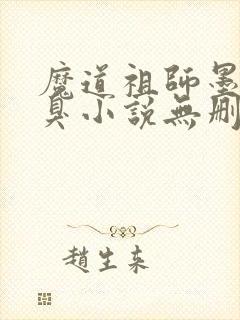 魔道祖師墨
臭小説無刪
趙生来